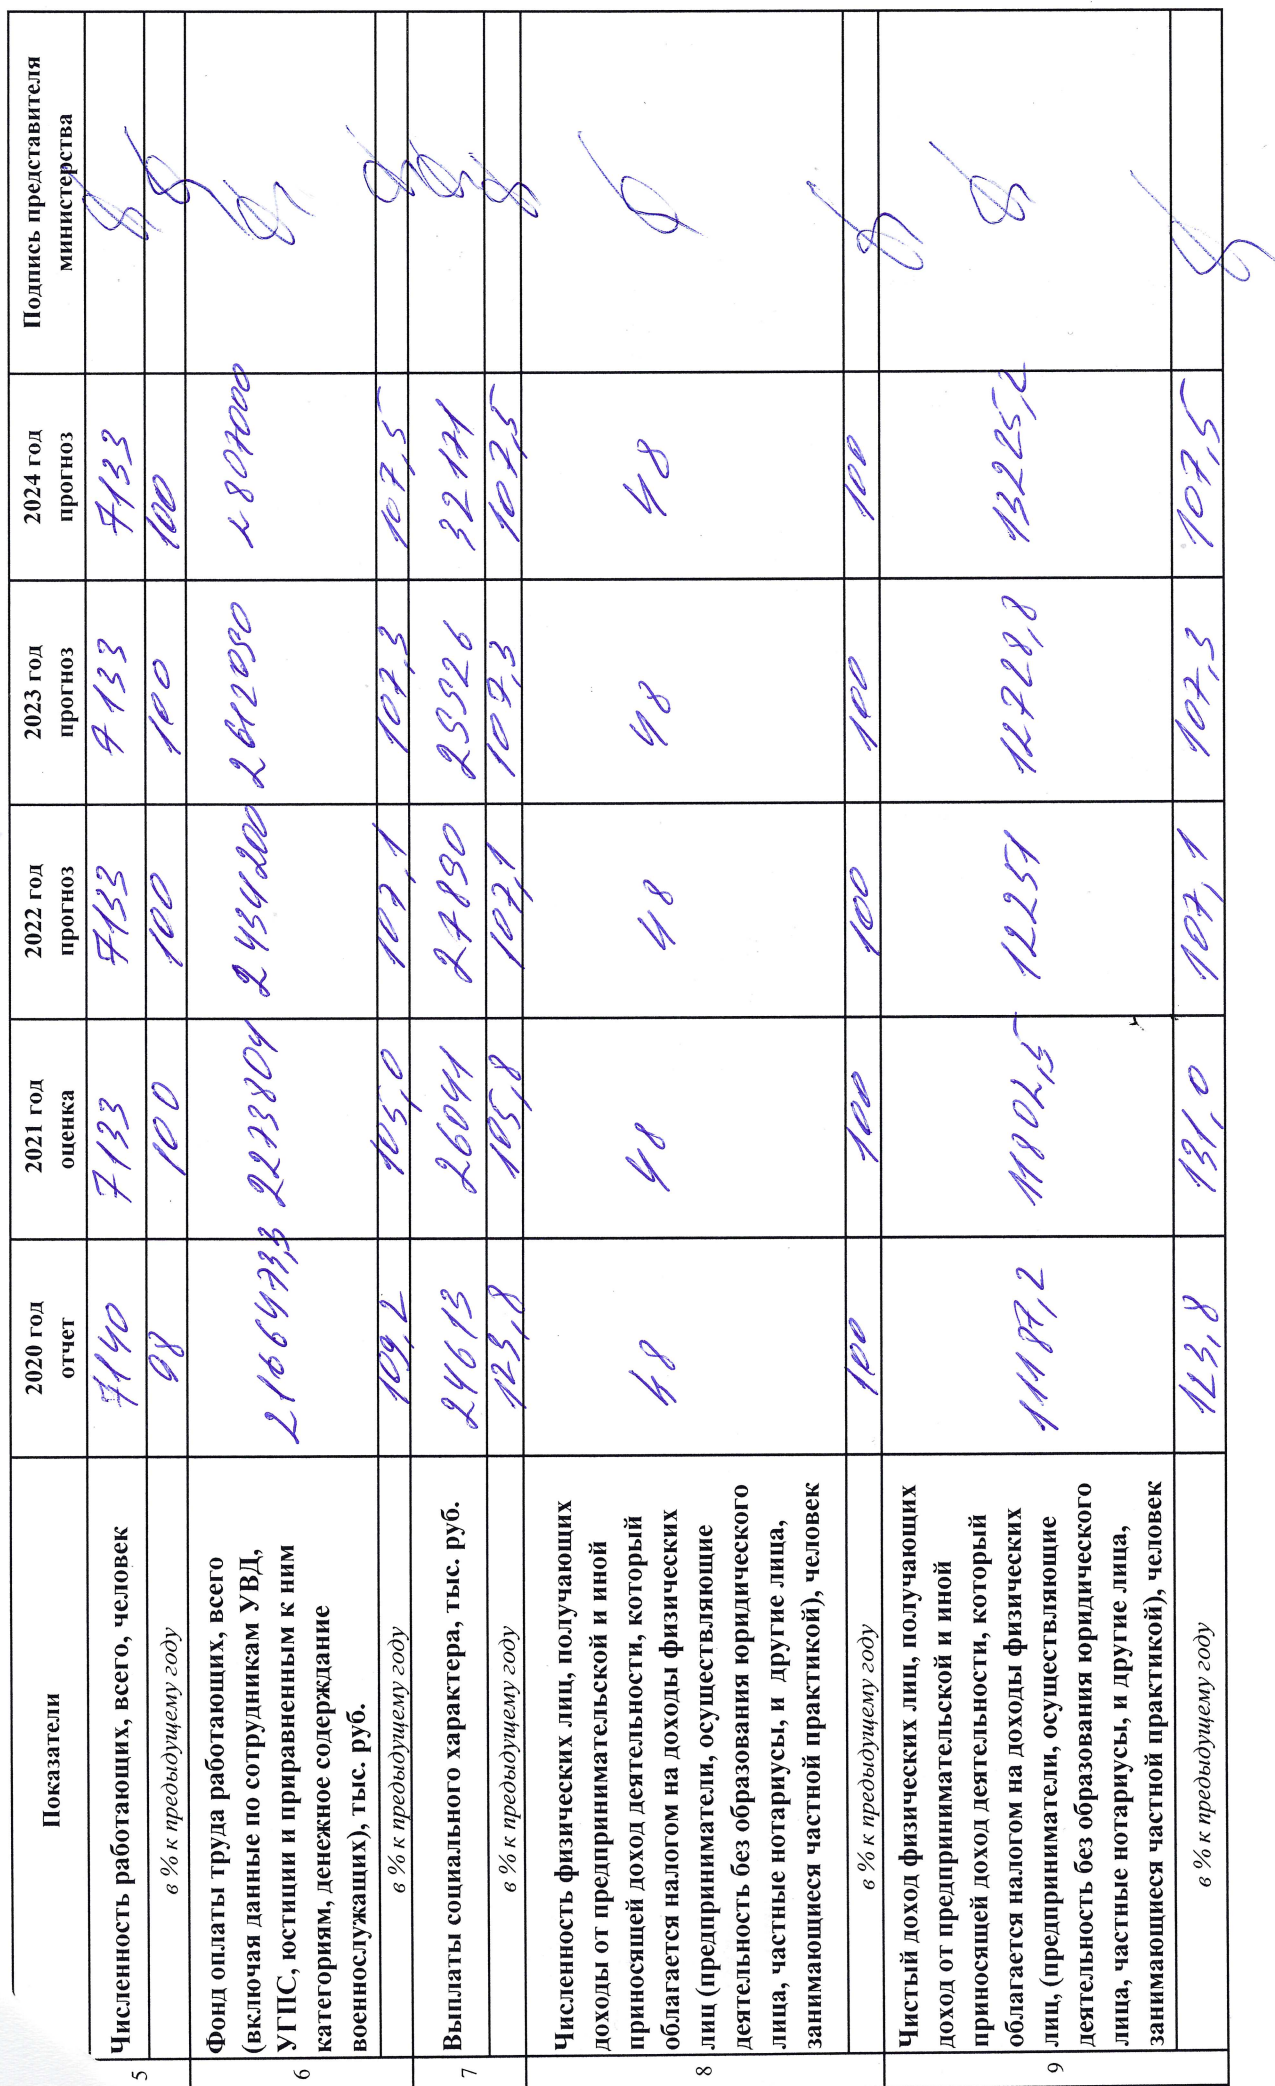 Показатели
2020 год
отчет
2021 год
оценка
2022 год
прогноз
2023 год
прогноз
2024 год
прогноз
Подпись представителя
министерства
5
Численность работающих, всего, человек
7140
7133
7133
7133
7133
в % к предыдущему году
98
100
100
100
100
6
Фонд оплаты труда работающих, всего
(включая данные по сотрудникам УВД,
УГПС, юстиции и приравненным к ним
категориям, денежное содержание
военнослужащих), тыс. руб.
2166473,3
2273804
2434200
2612050
2807000
в % к предыдущему году
109,2
105,0
107,1
107,3
107,5
7
Выплаты социального характера, тыс. руб.
24613
26041
27890
29926
32171
в % к предыдущему году
123,8
105,8
107,1
107,3
107,5
8
Численность физических лиц, получающих
доходы от предпринимательской и иной
приносящей доход деятельности, который
облагается налогом на доходы физических
лиц (предприниматели, осуществляющие
деятельность без образования юридического
лица, частные нотариусы, и другие лица,
занимающиеся частной практикой), человек
48
48
48
48
48
в % к предыдущему году
100
100
100
100
100
9
Чистый доход физических лиц, получающих
доход от предпринимательской и иной
приносящей доход деятельности, который
облагается налогом на доходы физических
лиц, (предприниматели, осуществляющие
деятельность без образования юридического
лица, частные нотариусы, и другие лица,
занимающиеся частной практикой), человек
11187,2
11802,5
12251
12728,8
13225,2
в % к предыдущему году
123,8
131,0
107,1
107,3
107,5